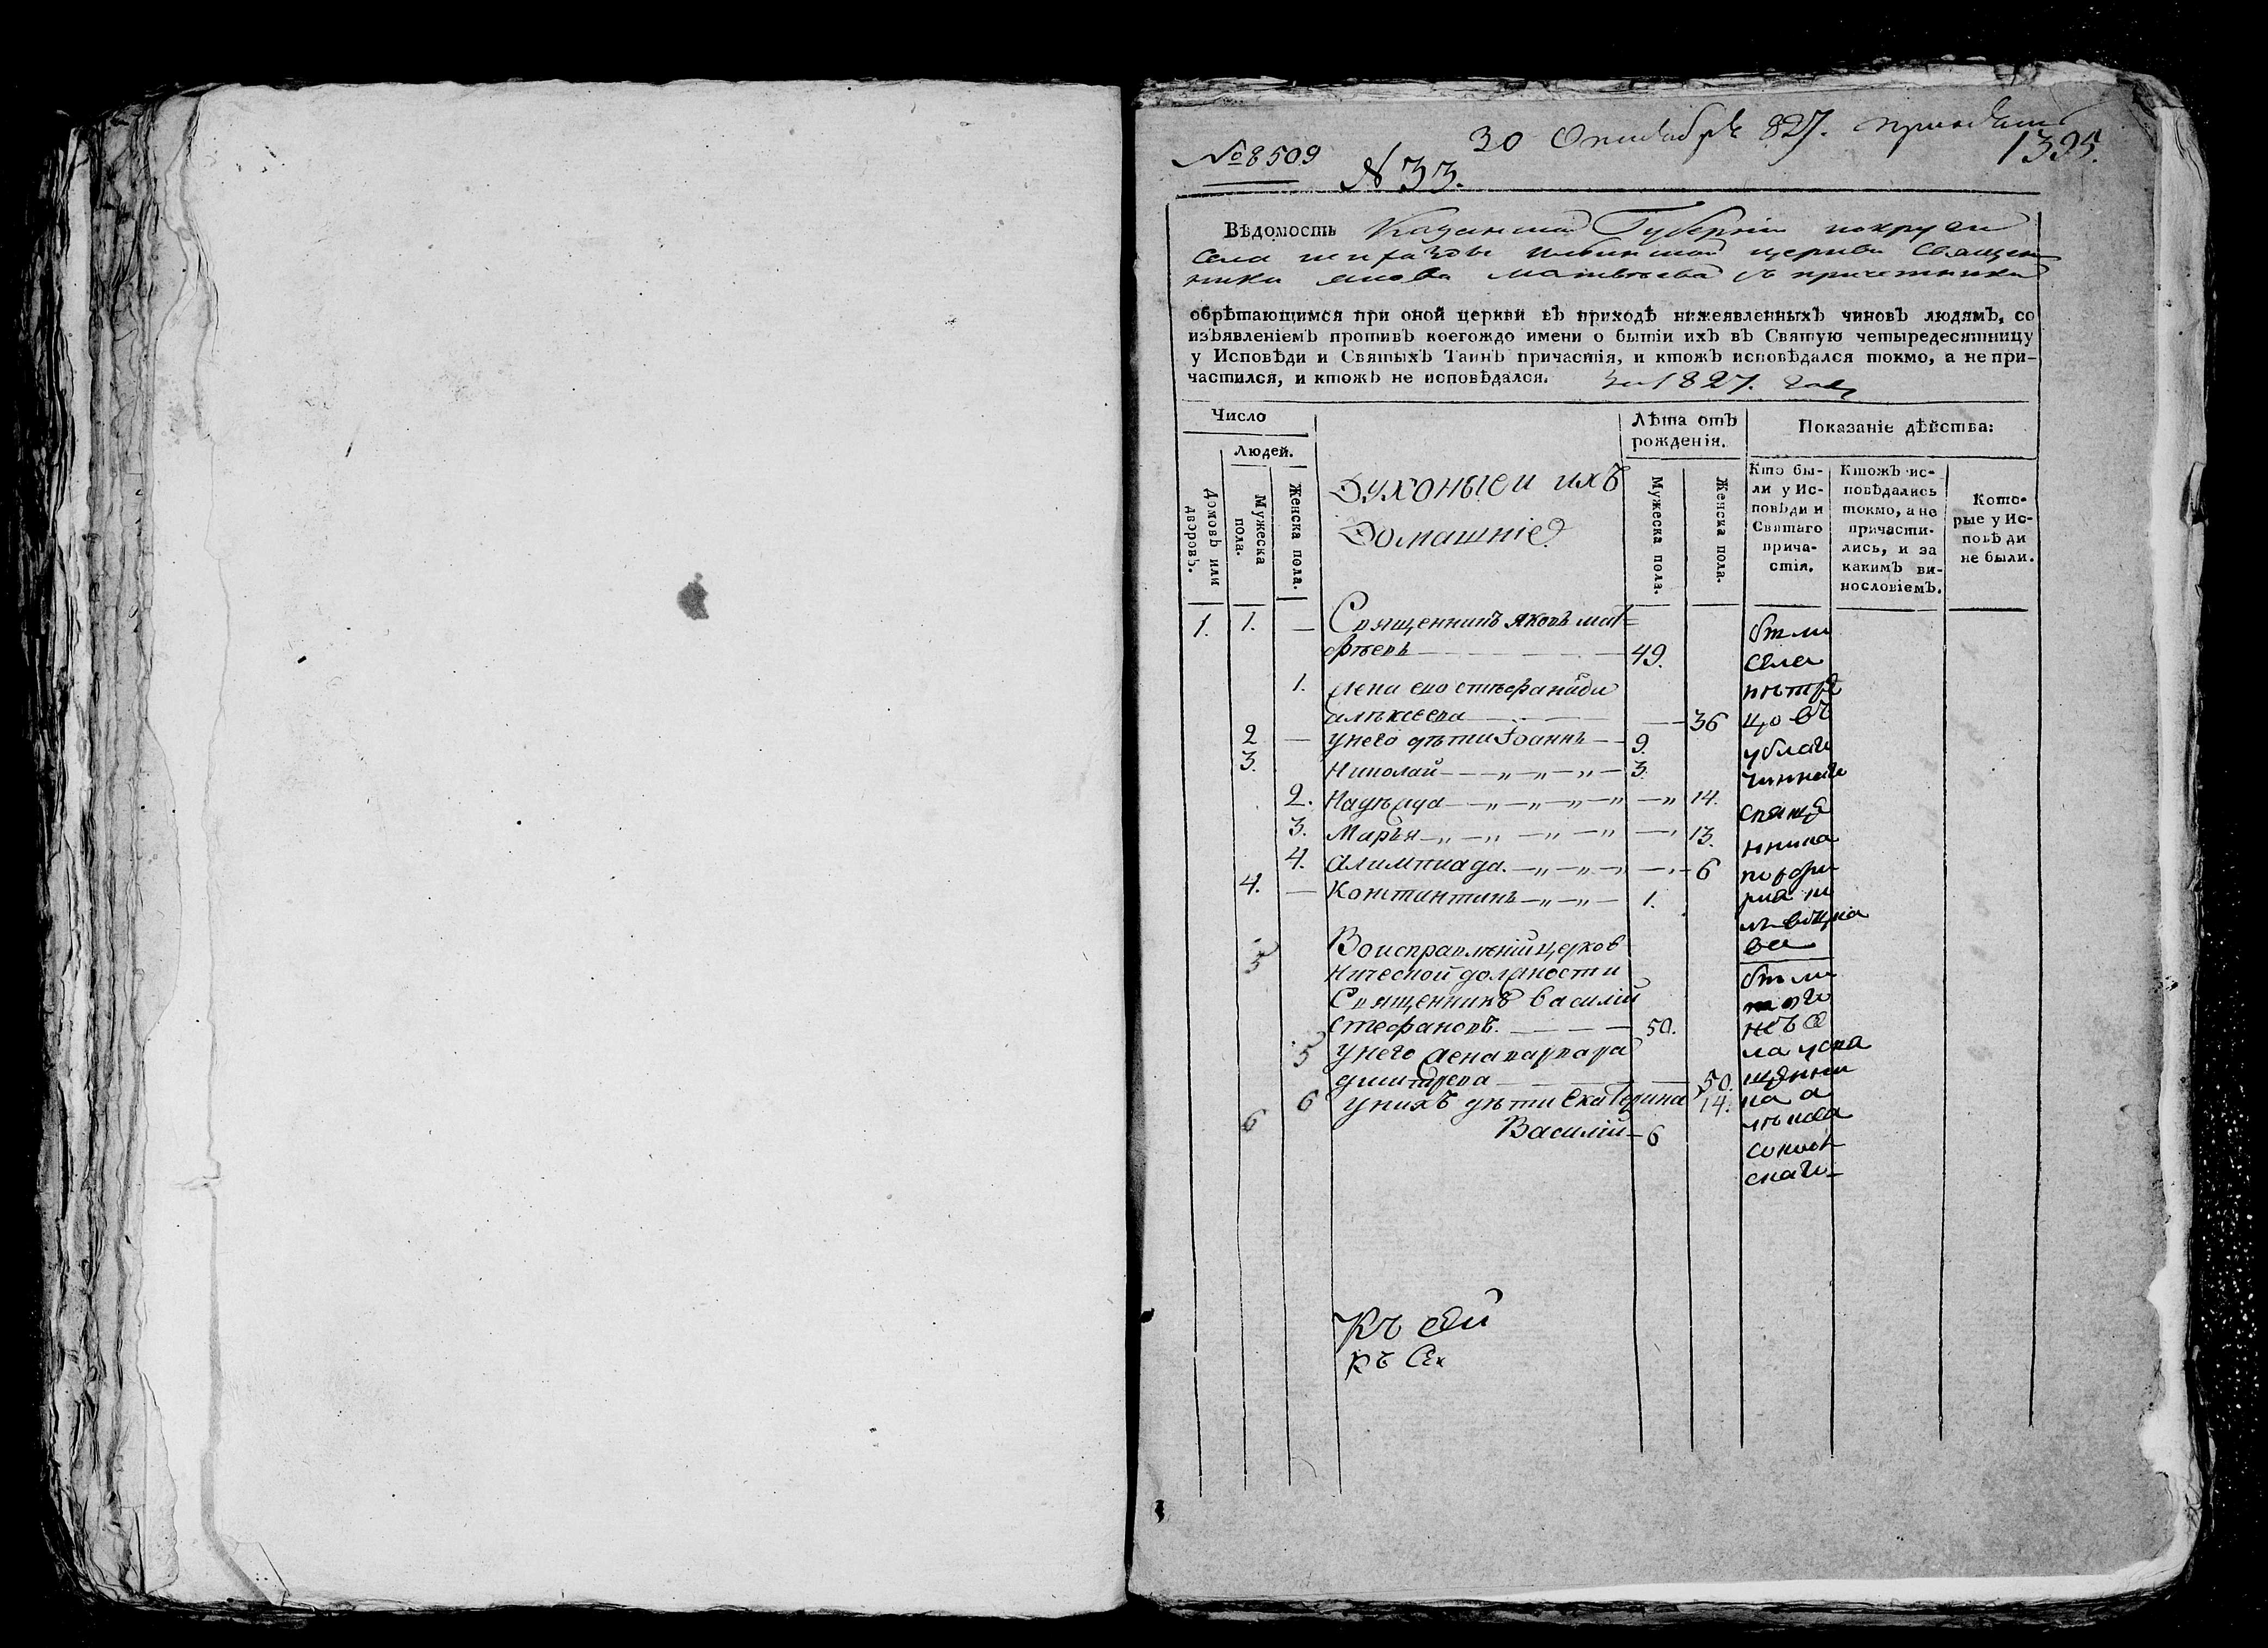 30 Октября 827. принята
№ 8509
№ 33.
1395.
Вѣдомость Казанской Губернiи покруги
села церкви Священ
ника Якова Матвѣева съ причетники
обрѣтающимся при оной церкви въ приходѣ нижеявленныхъ чиновъ людямъ, со
изъявленiемъ противъ коегождо имени о бытiи ихъ въ Святую четыредесятницу
у Исповѣди и Святыхъ Таинъ причастiя, и ктожъ исповѣдался токмо, а не при-
частился, и ктожъ не исповѣдался. за 1827. годъ
Число
Людей.
Домовъ или дворовъ.
Мужеска пола.
Женска пола.
Духоныеи ихъ
Домашнiе
Лѣта отъ рожденiя.
Мужеска пола.
Женска пола.
Показанiе дѣйства:
Кто бы-
ли у Ис-
повѣди и
Святаго
прича-
стiя.
Ктожъ ис-
повѣдались
токмо, а не
причасти-
лись, и за
какимъ ви-
нословiемъ.
Кото-
рые у Ис-
повѣди
не были.
1. 1. — Священникъ яковъ мат=
фѣевъ — 49.
1. жена ево стефанида
алѣксеева — 36
2 — унего дѣти Iоаннъ — 9.
3. Николай — 3.
2. Надѣжда — 14.
3. Марья — 13.
4. Алимпиада. — 6
4. — Константинъ — 1.
5 Воисправленiи церков
нической должности
Священникъ Василiй
Стефановъ. — 50.
5 унего жена варвара
дмитрева — 50.
6 унихъ дѣти Екатерина 14.
6 Василiй — 6
были
села
цовъ
ублаги
чиннаго
свяще
нника
были
Къ сей
къ Се